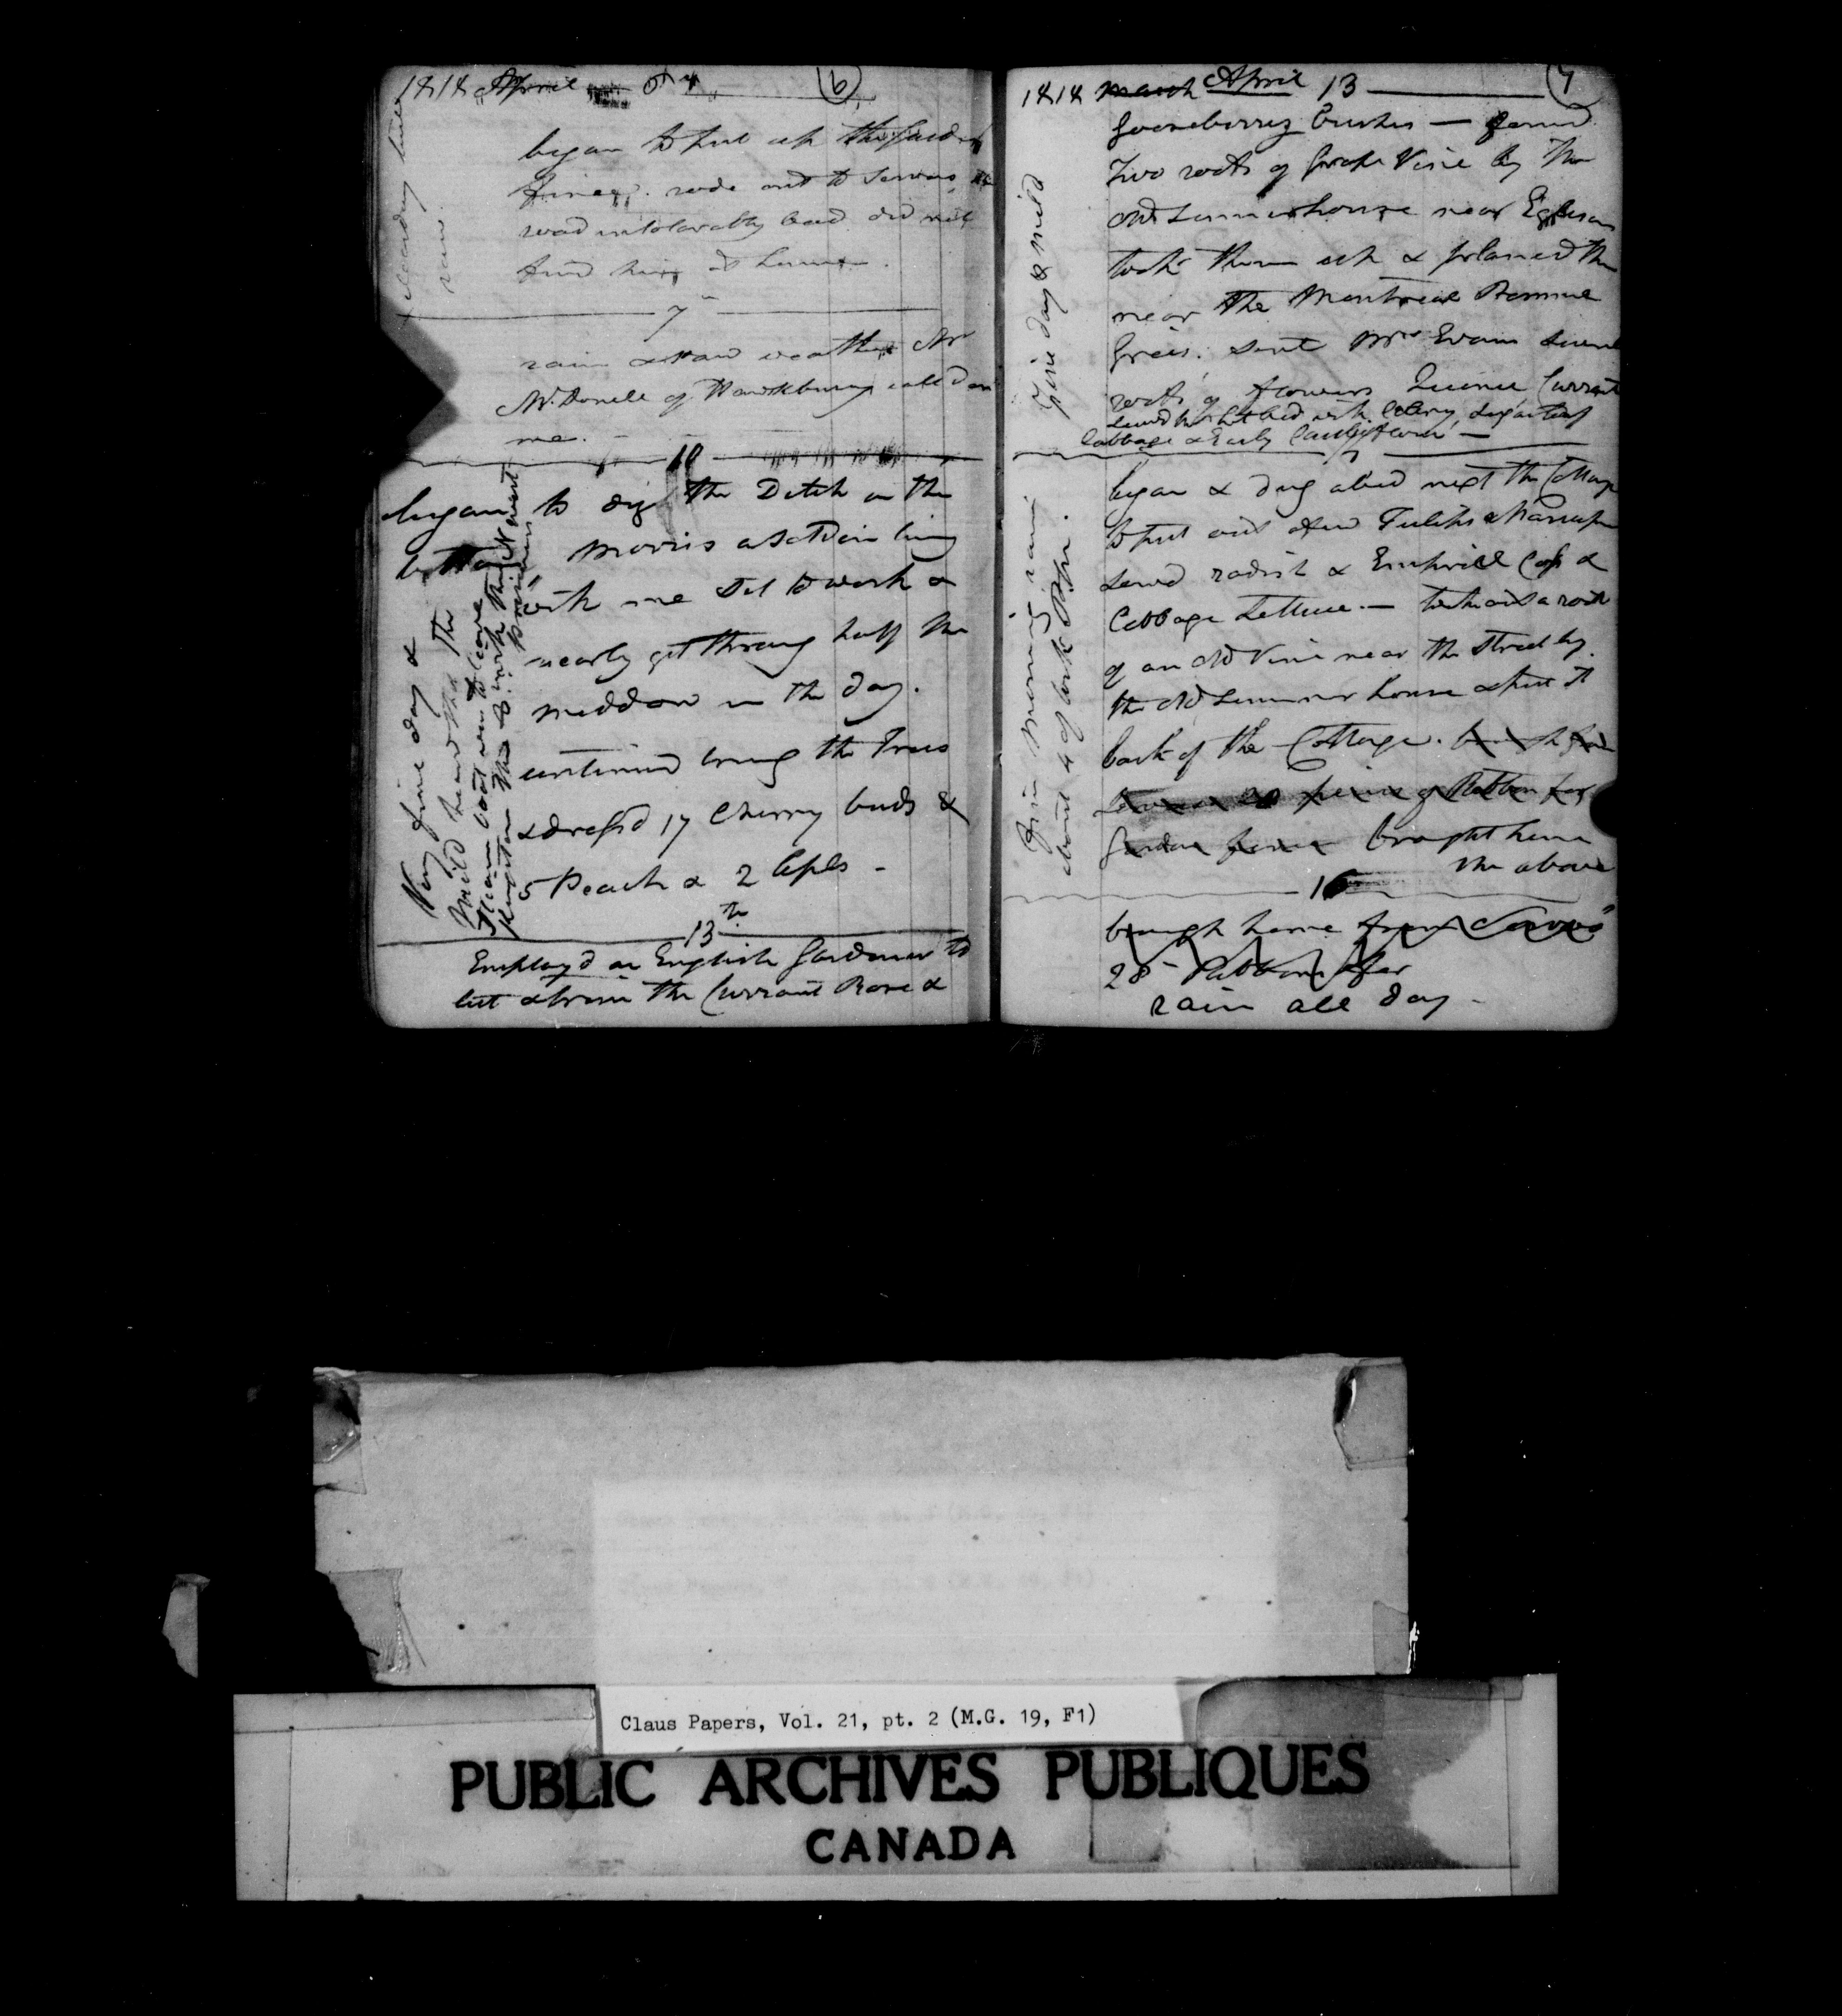 1818 April
6
began to put up the Garden
rode out to Servos
road intolerably bad did not
find him at home.
a cloudy
rain.
7"
rain & raw weather Mr
McDonell of Hawkbury called on
me.
10
began to dig the Ditch on the
bottom, Morris a living
with me set to work &
nearly got through half the
meddow in the day.
continued the Trees
& dress'd 17 Cherry buds &
5 Peach & 2 Apls -
Very fine day &
mild heard that the
Steam boat was to leave
Kingston this
13th
Employ'd an English Gardener to
cut & trim the Currant Rose &
1818 March April 13
7
Gooseberry bushes — found
Two roots of Grape Vine by the
old Summerhouse near
took them up & planted the
near the Montreal Pomme
Grise. sent Mrs Evans several
roots of flowers Quince Currant
sowed hot bed with Celery, Sugarloaf
Cabbage & Early Cauliflower —
Fine day & mild
began & dug a bed next the Cottage
to put out a few Tulips & Narcissus
sowed radish &
Cabbage Lettuce. — took out a root
of an old Vine near the street by
the old Summer house & put it
back of the Cottage.
Garden fence brought home
the above
Fine morning rain
about 4 o'clock P.M.
15
brough home from Servos's
28
rain all day -
Claus Papers, Vol. 21, pt. 2 (M.G. 19, F1)
PUBLIC ARCHIVES PUBLIQUES
CANADA